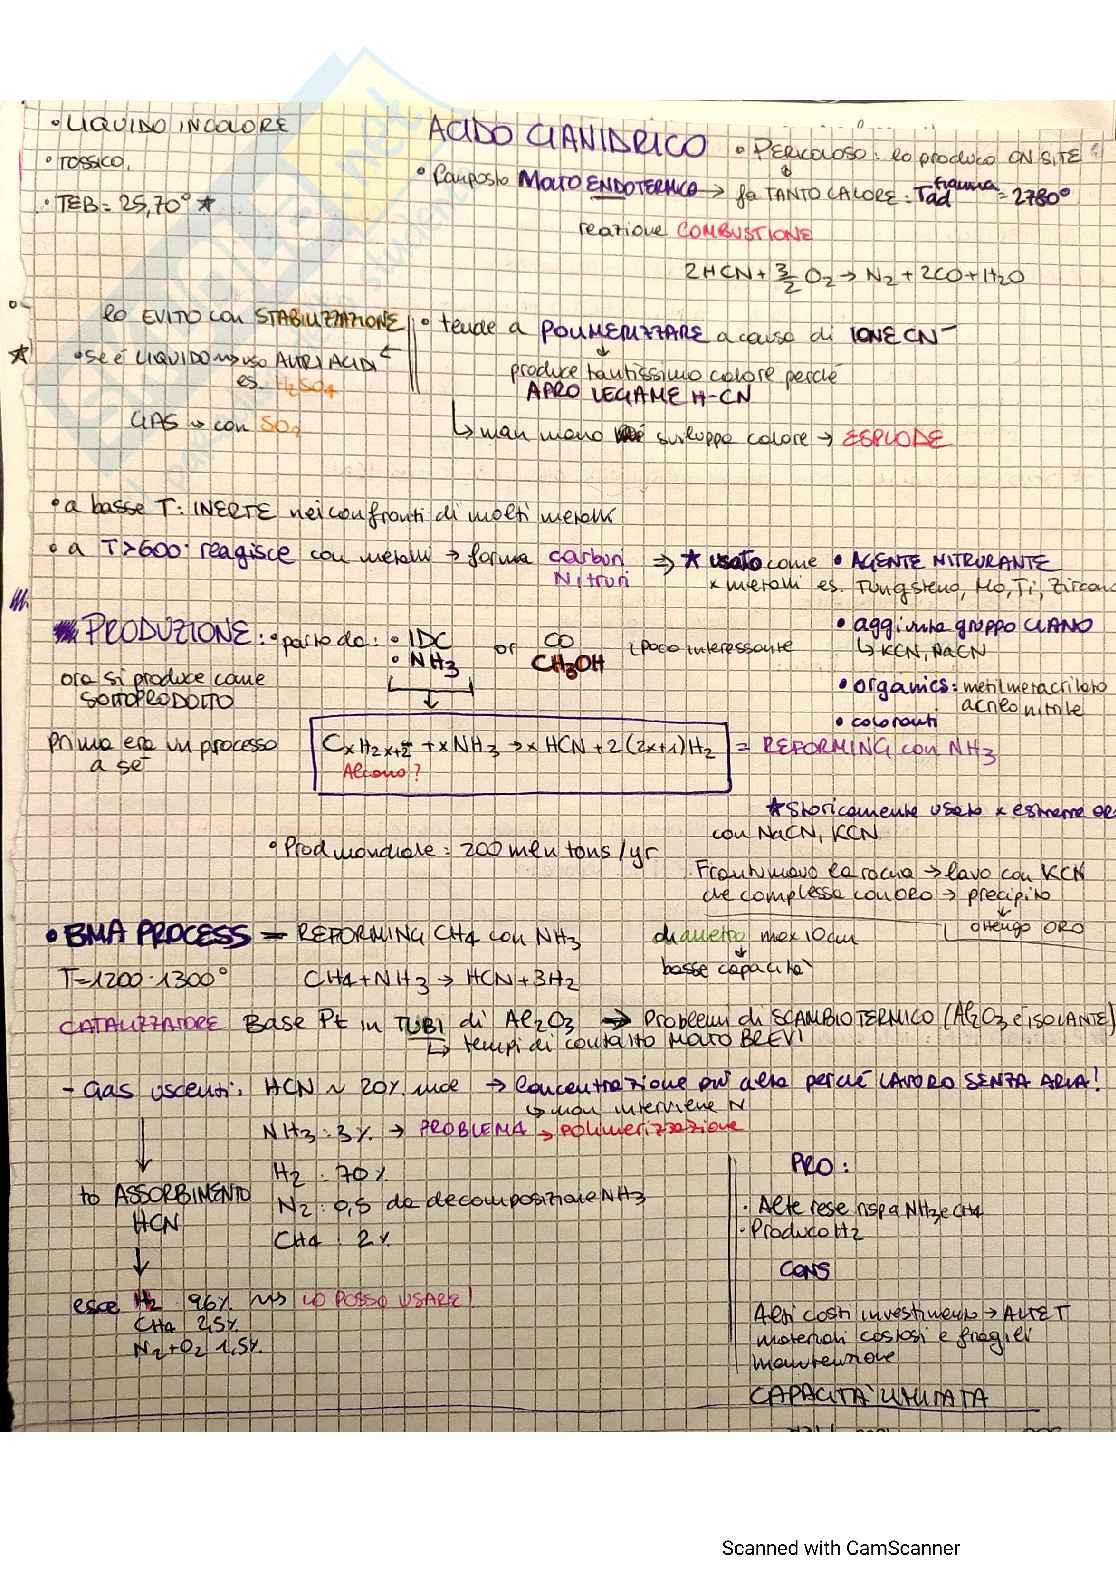 • LIQUIDO INCOLORE
ACIDO CIANIDRICO
• PERICOLOSO: lo produco ON SITE
• TOSSICO.
• Composto MOLTO ENDOTERMICO → fa TANTO CALORE: Tad fiamma = 2780°
• TEB = 25,70° ★
reazione COMBUSTIONE
2HCN + 3/2 O2 → N2 + 2CO + H2O
lo EVITO con STABILIZZAZIONE
• tende a POLIMERIZZARE a causa di IONE CN⁻
★ • se è LIQUIDO → uso ALTRI ACIDI
es. H2SO4
produce tantissimo calore perché
APRO LEGAME H-CN
GAS → con SO2
↳ man mano sviluppa calore → ESPLODE
• a basse T: INERTE nei confronti di molti metalli
• a T>600° reagisce con metalli → forma carburi
Nitruri
⇒ ★ usato come • AGENTE NITRURANTE
x metalli es. Tungsteno, Mo, Ti, Zircono
PRODUZIONE: • parto da: • IDC
• NH3
or
CO
CH3OH
(poco interessante
• aggiunta gruppo CIANO
↳ KCN, NaCN
ora si produce come
SOTTOPRODOTTO
• organics: metilmetacrilato
acrilonitrile
• coloranti
Prima era un processo
a sé
CxH2x+2 + xNH3 → xHCN + 2(2x+1)H2 = REFORMING con NH3
Alcano?
★ Storicamente usato x estrarre OR
con NaCN, KCN
• Prod mondiale: 200 mln tons/yr
Frantumavo la roccia → lavo con KCN
che complessa con oro → precipito
ottengo ORO
• BMA PROCESS = REFORMING CH4 con NH3
diametro max 10 cm
basse capacità
T=1200-1300°
CH4 + NH3 → HCN + 3H2
CATALIZZATORE Base Pt in TUBI di Al2O3 → Problemi di SCAMBIO TERMICO (Al2O3 è ISOLANTE)
↳ tempi di contatto MOLTO BREVI
- Gas uscenti: HCN ~ 20% mol → Concentrazione più alta perché LAVORO SENZA ARIA!
↳ non interviene N
NH3: 3% → PROBLEMA → polimerizzazione
H2: 70%
to ASSORBIMENTO
HCN
N2: 0,5 da decomposizione NH3
CH4: 2%
esce H2 96% → LO POSSO USARE!
CH4 2,5%
N2+O2 1,5%.
PRO:
• Alte rese rispa NH3 e CH4
• Produco H2
CONS
Alti costi investimento → ALTE T
materiali costosi e fragili
manutenzione
CAPACITA' LIMITATA
Scanned with CamScanner